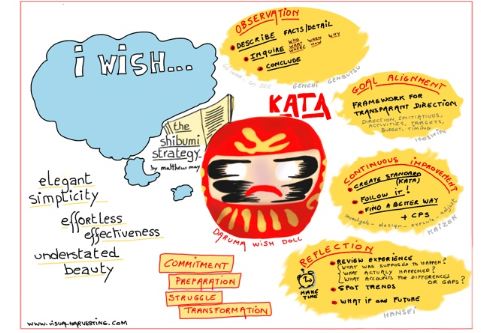 i wish...
the
shibumi
strategy
by matthew may
elegant
simplicity
effortless
effectiveness
understated
beauty
www.visual-harvesting.com
KATA
DARUMA WISH DOLL
COMMITMENT
PREPARATION
STRUGGLE
TRANSFORMATION
OBSERVATION
DESCRIBE FACTS/DETAIL
INQUIRE WHO WHAT WHEN WHERE WHY HOW
CONCLUDE
GENCHI GENBUTSU
GOAL ALIGNMENT
FRAMEWORK FOR
TRANSPARANT DIRECTION
DIRECTION, INITIATIVES,
ACTIVITIES, TARGETS,
BUDGET, TIMING
HOSHIN
CONTINUOUS IMPROVEMENT
CREATE STANDARD
(KATA)
FOLLOW IT!
FIND A BETTER WAY
+ CPS
KAIZEN
REFLECTION
REVIEW EXPERIENCE
WHAT WAS SUPPOSED TO HAPPEN?
WHAT ACTUALLY HAPPENED?
WHAT ACCOUNTS FOR DIFFERENCES
OR GAPS?
MAKE
TIME
SPOT TRENDS
WHAT IF AND FUTURE
HANSEI